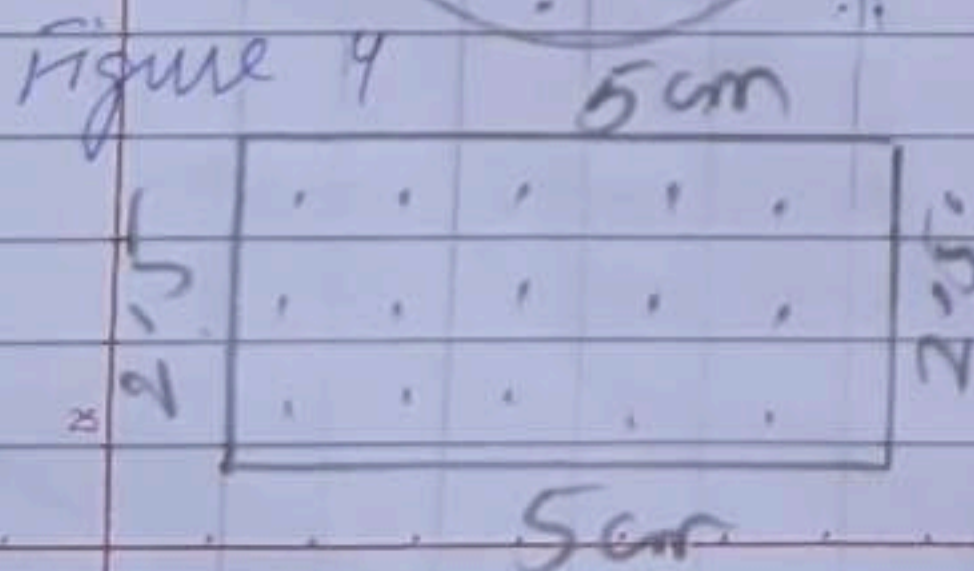 Figure 4
5 cm
2,5
2,5
25
5 cm